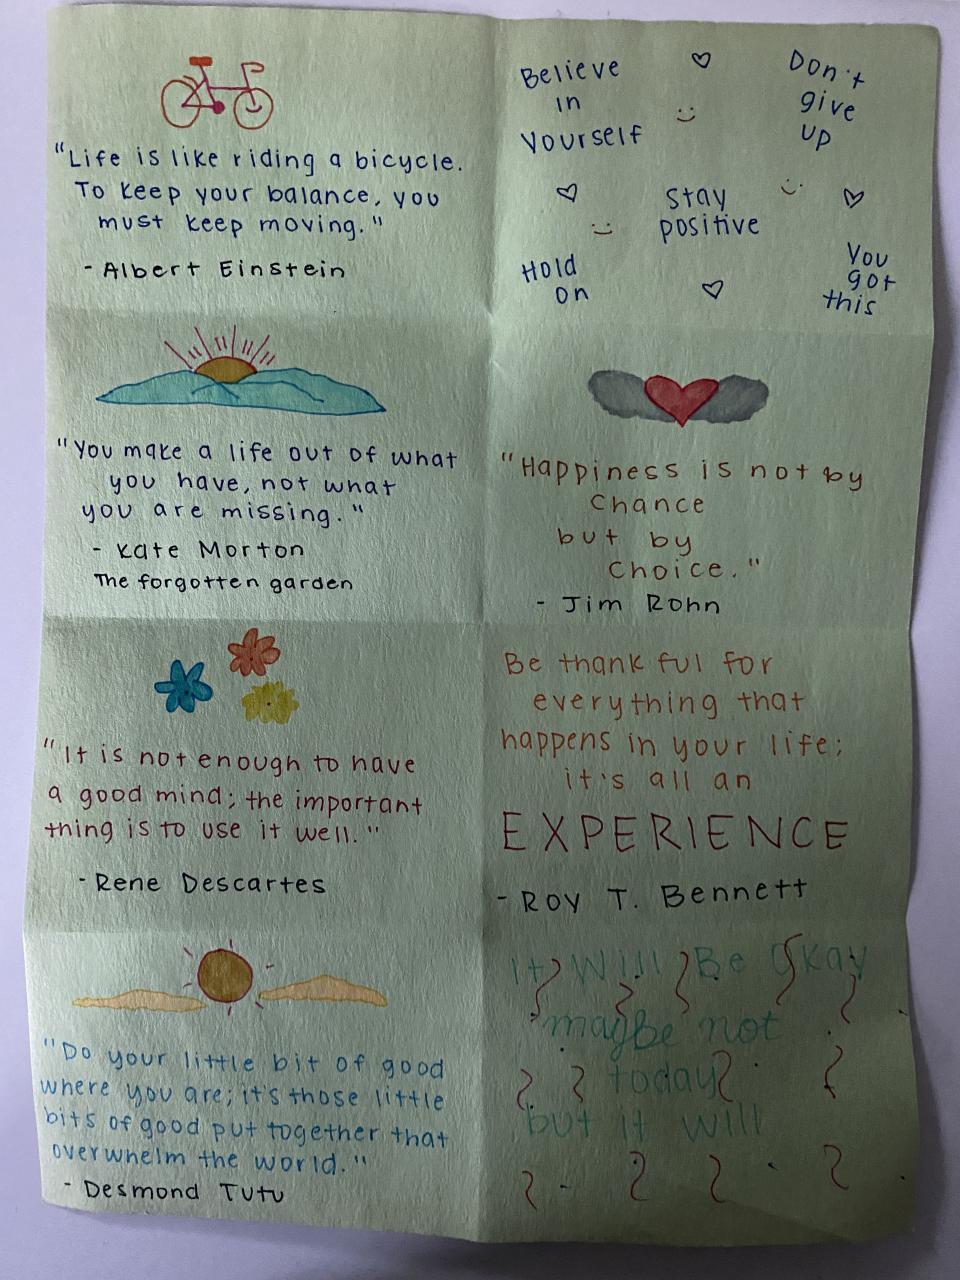 "Life is like riding a bicycle.
To keep your balance, you
must keep moving."
- Albert Einstein
Believe
in
yourself
Don't
give
up
stay
positive
Hold
on
You
got
this
"You make a life out of what
you have, not what
you are missing."
- Kate Morton
The forgotten garden
"Happiness is not by
Chance
but by
Choice."
- Jim Rohn
"It is not enough to have
a good mind; the important
thing is to use it well."
- Rene Descartes
Be thankful for
everything that
happens in your life;
it's all an
EXPERIENCE
- Roy T. Bennett
"Do your little bit of good
where you are; it's those little
bits of good put together that
overwhelm the world."
- Desmond Tutu
It Will Be Okay
maybe not
today
but it will